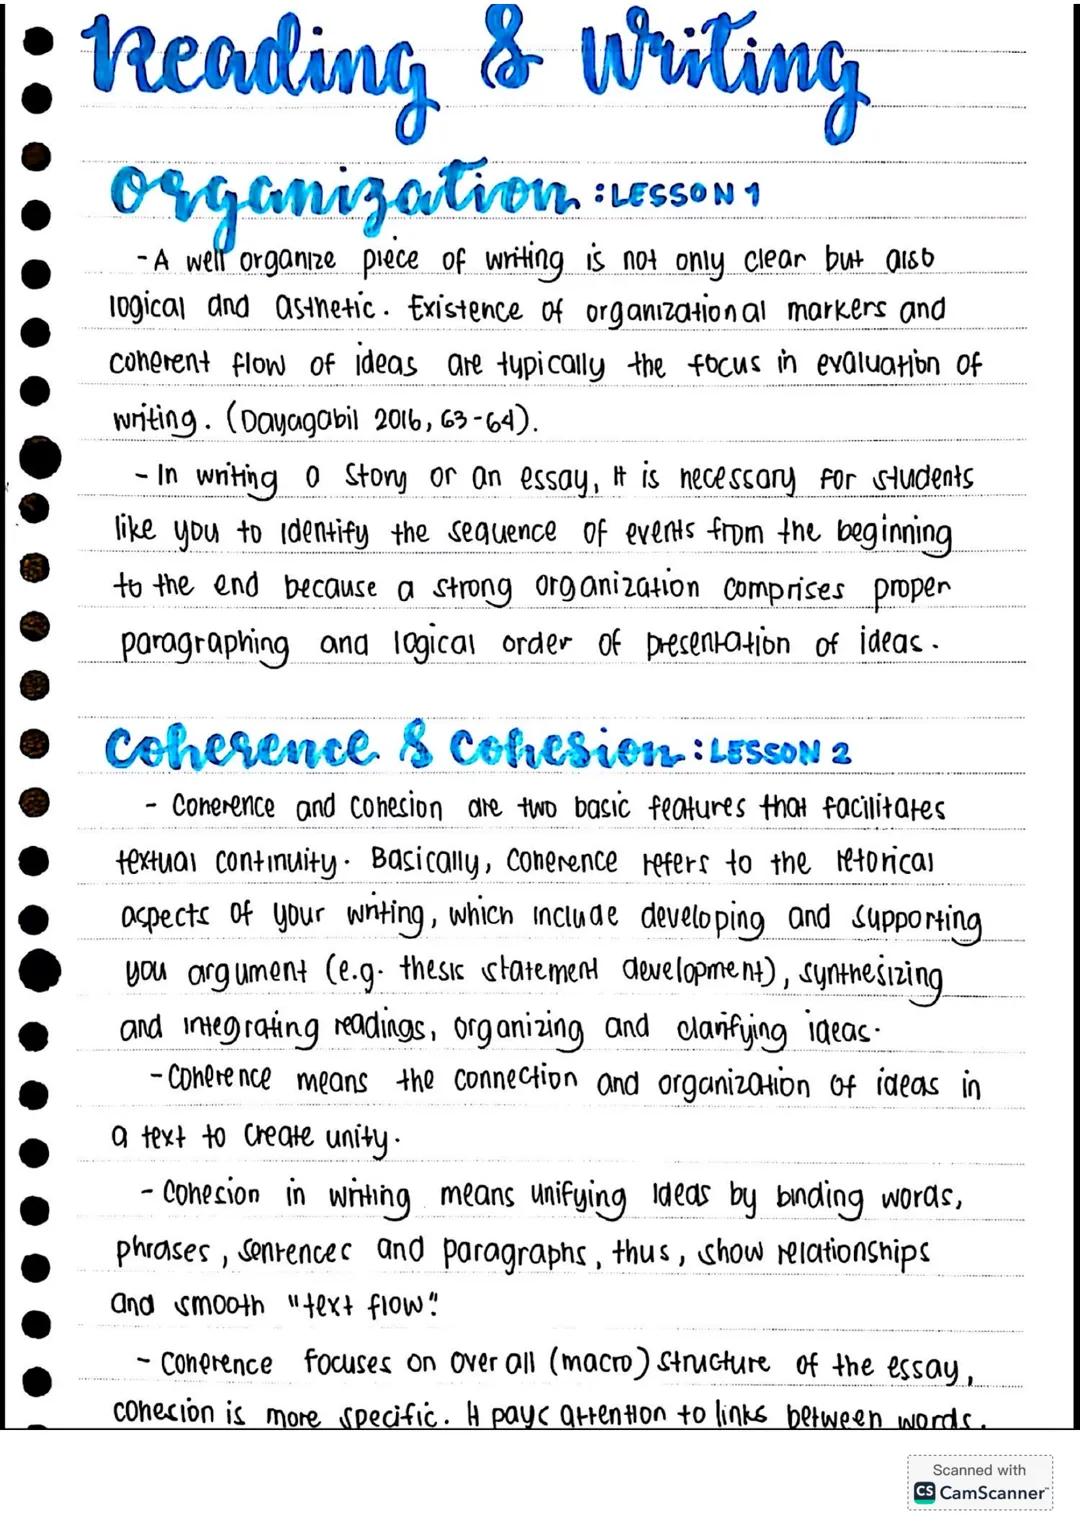 Reading & Writing
Organization : LESSON 1
- A well organize piece of writing is not only clear but also
logical and asthetic. Existence of organizational markers and
coherent flow of ideas are typically the focus in evaluation of
writing. (Dayagabil 2016, 63-64).
- In writing a story or an essay, it is necessary for students
like you to identify the sequence of events from the beginning
to the end because a strong organization comprises proper
paragraphing and logical order of presentation of ideas.
Coherence & Cohesion : LESSON 2
- Coherence and cohesion are two basic features that facilitates
textual continuity. Basically, coherence refers to the retorical
aspects of your writing, which include developing and supporting
you argument (e.g. thesis statement development), synthesizing
and integrating readings, organizing and clarifying ideas.
- Coherence means the connection and organization of ideas in
a text to create unity.
- Cohesion in writing means unifying ideas by binding words,
phrases, sentences and paragraphs, thus, show relationships
and smooth "text flow".
- Coherence focuses on over all (macro) structure of the essay,
cohesion is more specific. It pays attention to links between words.
Scanned with
CS CamScanner™